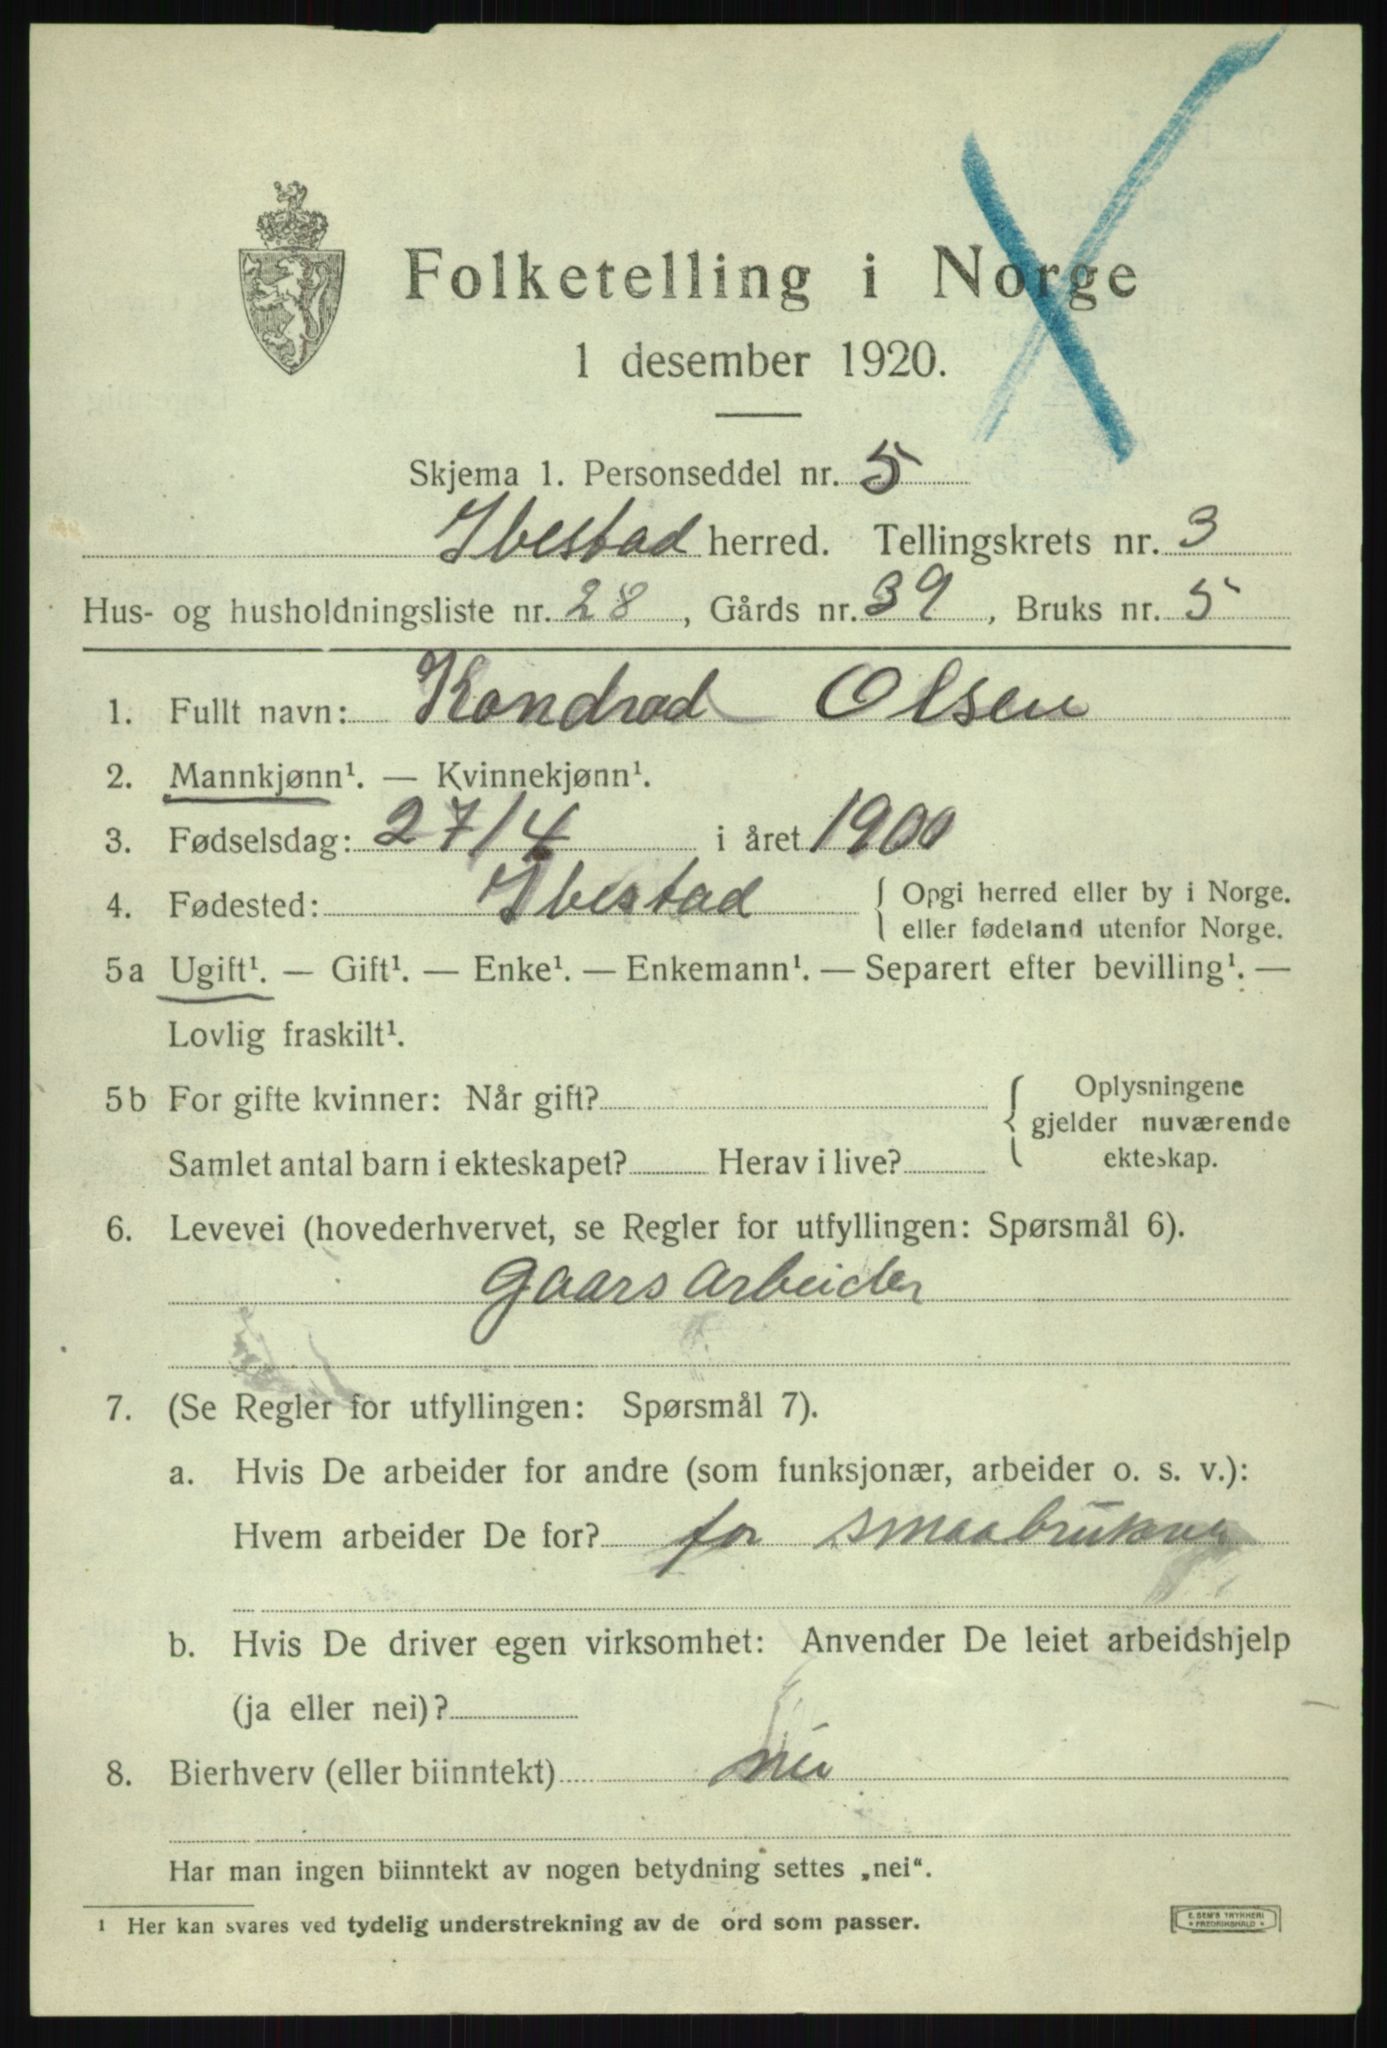 Folketelling i Norge
1 desember 1920.
Skjema 1. Personseddel nr. 5
Ibestad herred. Tellingskrets nr. 3
Hus- og husholdningsliste nr. 28, Gårds nr. 39, Bruks nr. 5
1. Fullt navn: Kondrad Olsen
2. Mannkjønn¹. — Kvinnekjønn¹.
3. Fødselsdag: 27/4 i året 1900
4. Fødested: Ibestad { Opgi herred eller by i Norge.
eller fødeland utenfor Norge.
5a Ugift¹. — Gift¹. — Enke¹. — Enkemann¹. — Separert efter bevilling¹. —
Lovlig fraskilt¹.
5b For gifte kvinner: Når gift? { Oplysningene
gjelder nuværende
Samlet antal barn i ekteskapet? Herav i live? ekteskap.
6. Levevei (hovederhvervet, se Regler for utfyllingen: Spørsmål 6).
Gaarsarbeider
7. (Se Regler for utfyllingen: Spørsmål 7).
a. Hvis De arbeider for andre (som funksjonær, arbeider o. s. v.):
Hvem arbeider De for? for smaabruker
b. Hvis De driver egen virksomhet: Anvender De leiet arbeidshjelp
(ja eller nei)?
8. Bierhverv (eller biinntekt) nei
Har man ingen biinntekt av nogen betydning settes „nei“.
¹ Her kan svares ved tydelig understrekning av de ord som passer.
E. SEM'S TRYKKERI
* FREDRIKSHALD *